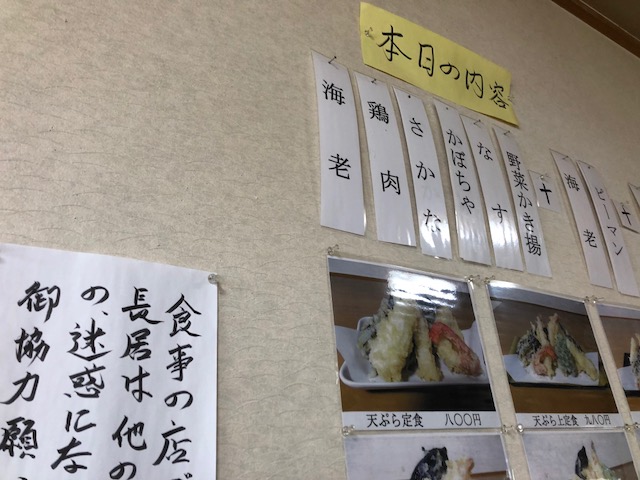 本日の内容
十
ピーマン
海老
十
野菜かき揚
なす
かぼちゃ
さかな
鶏肉
海老
天ぷら定食 八〇〇円
天ぷら上定食 九八〇円
食事の店
長居は他の
の、迷惑にな
御協力願